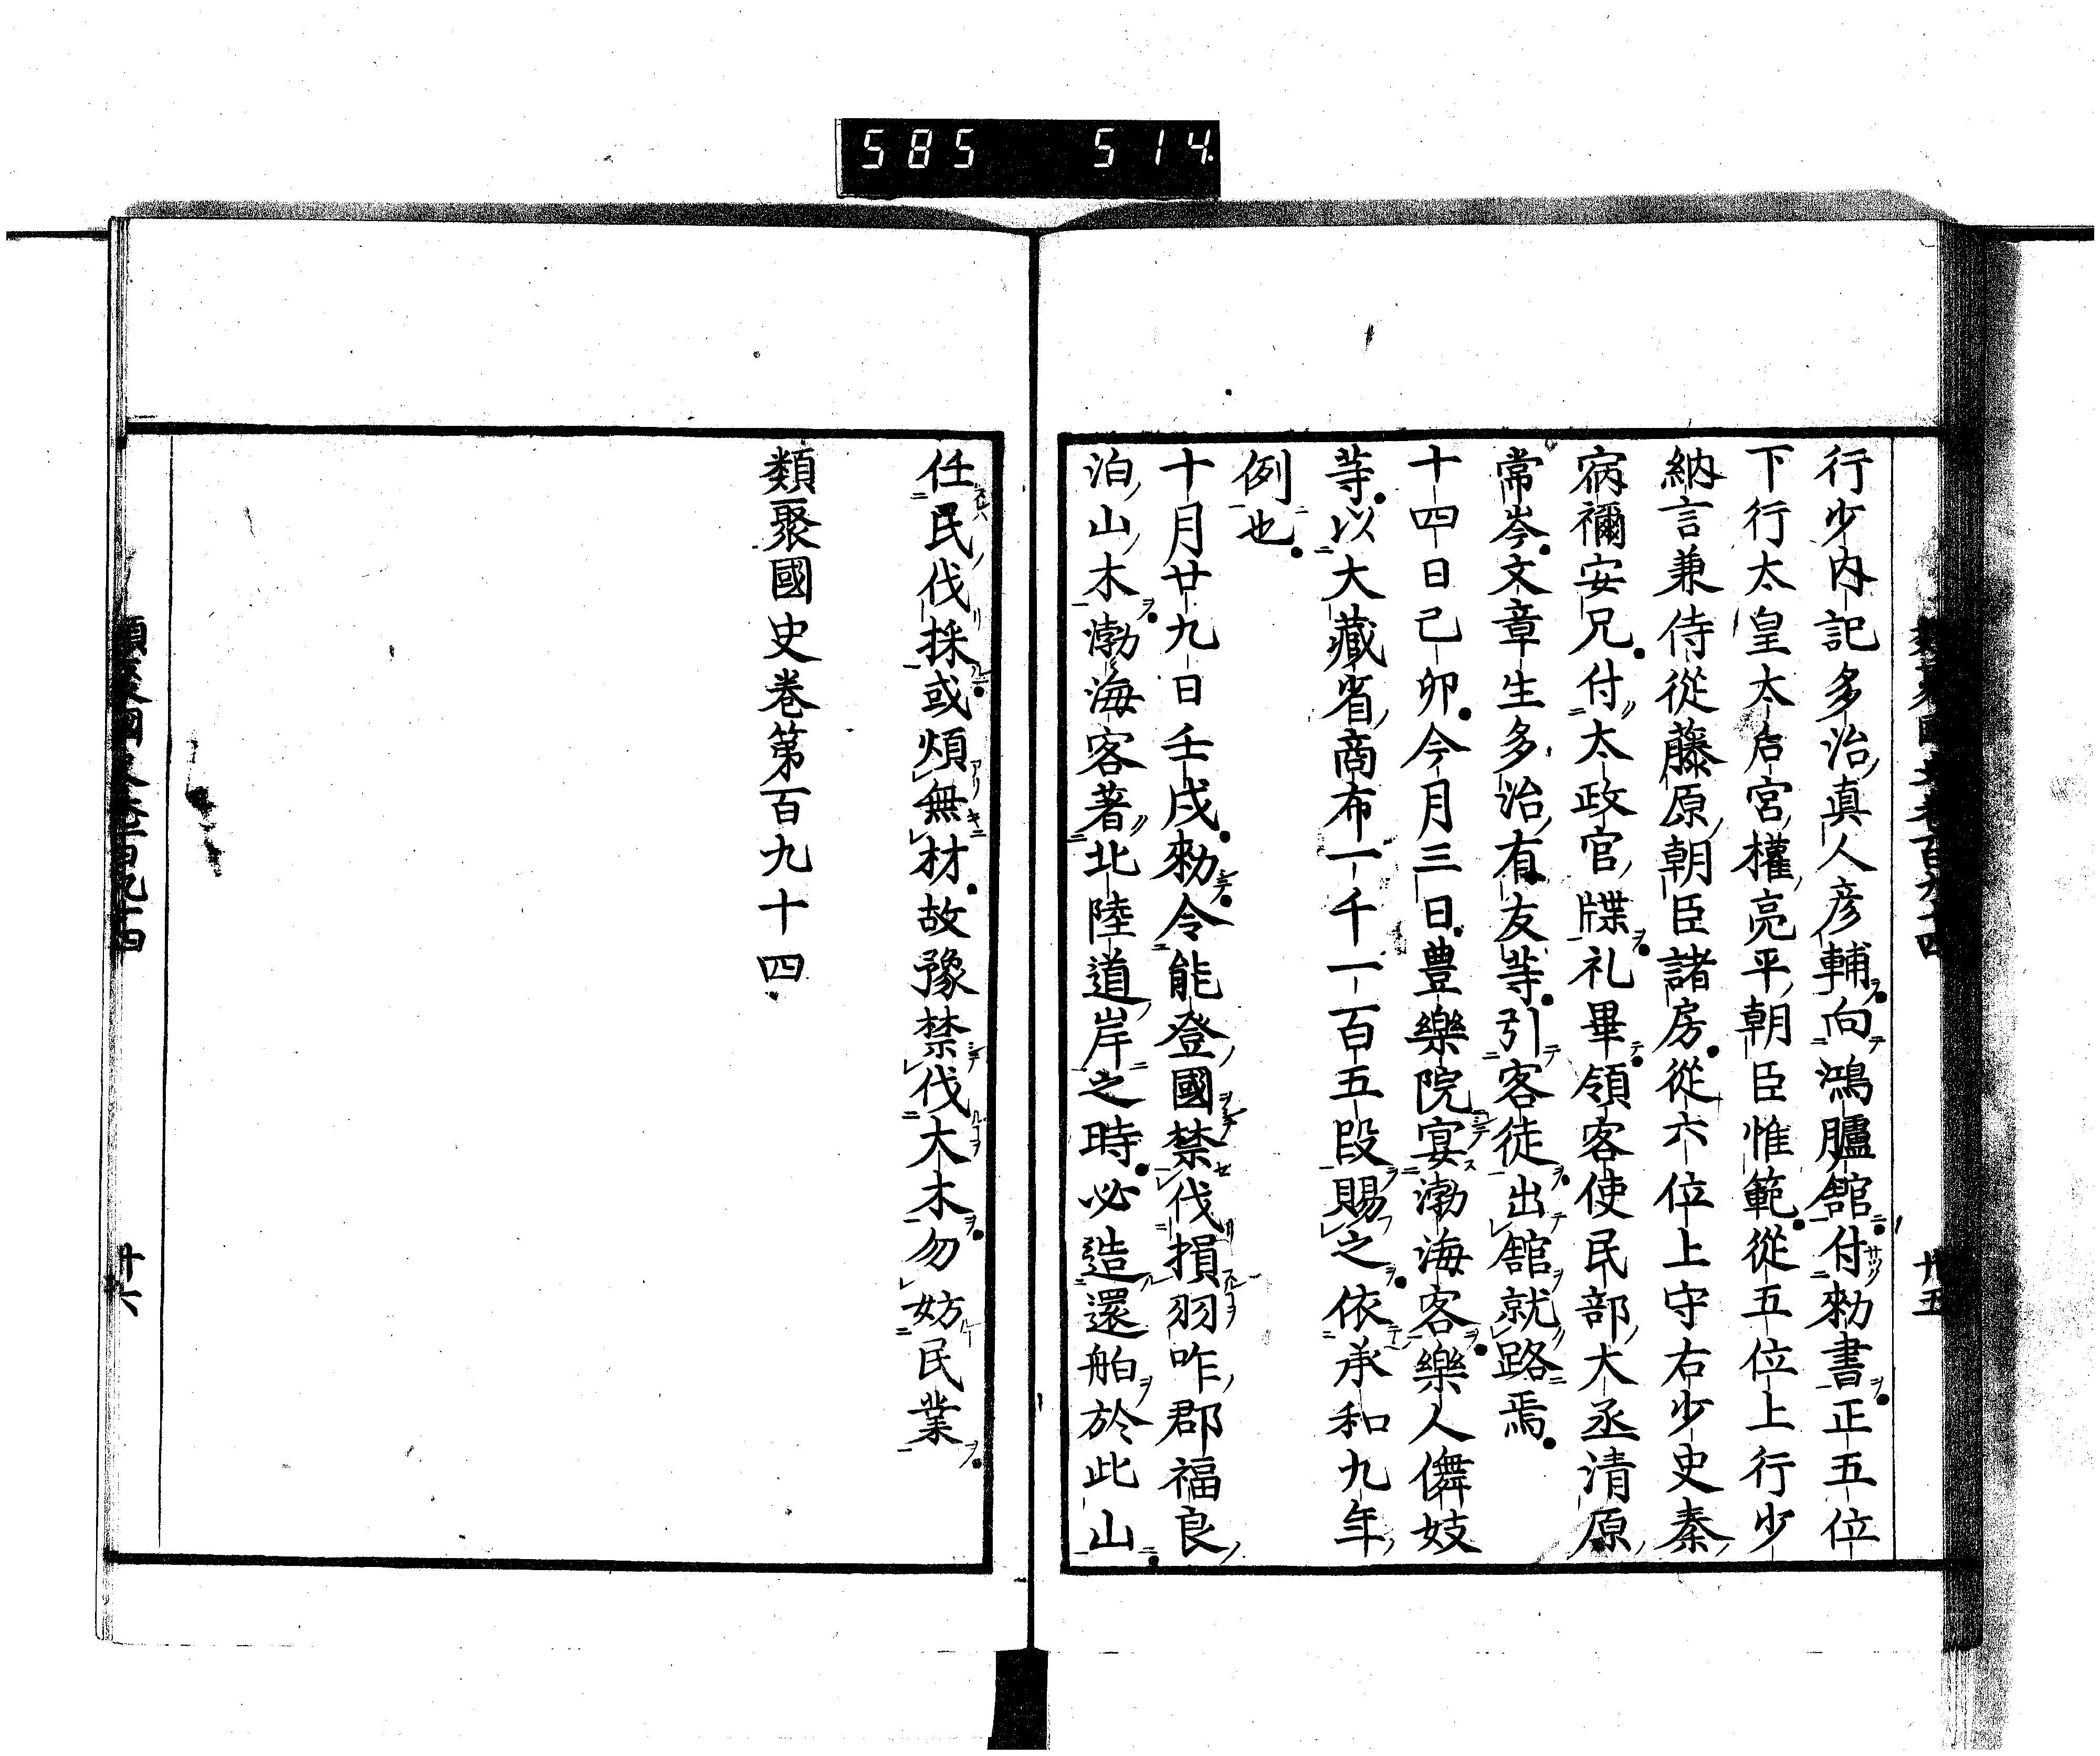 585 514
類聚國史卷百九十四 廿五
行少内記多治真人彦輔向鴻臚舘付勑書正五位
下行太皇太后宮權亮平朝臣惟範從五位上行少
納言兼侍從藤原朝臣諸房從六位上守右少史秦
宿禰安兄付太政官牒礼畢領客使民部大丞清原
常岑文章生多治有友等引客徒出舘就路焉
十四日己卯今月三日豊樂院宴渤海客樂人儛妓
等以大藏省商布一千一百五段賜之依承和九年
例也
十月廿九日壬戌勑令能登國禁伐損羽咋郡福良
泊山木渤海客著北陸道岸之時必造還舶於此山
任民伐採或煩無材故豫禁伐大木勿妨民業
類聚國史卷第百九十四
類聚國史卷百九十四 廿六